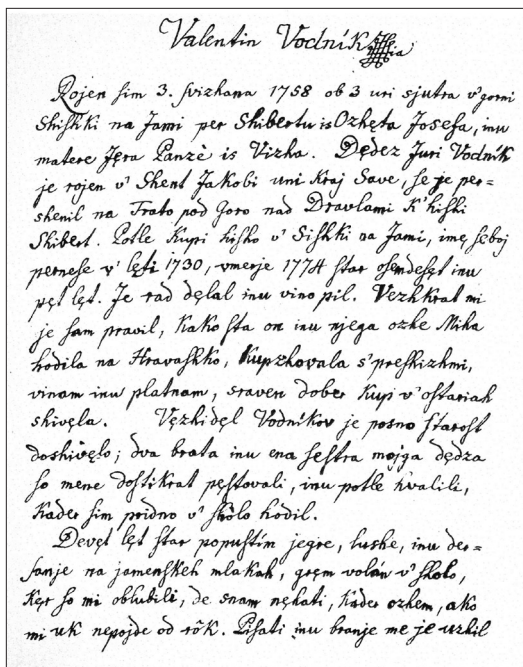 Valentin Vodnik
Rojen ſim 3. ſvizhana 1758 ob 3 uri sjutra v' gorni
Shiſhki na Jami per Shibertu is Ozhęta Joſefa, inu
matere Jęra Panzè is Vizha. Dędez Juri Vodnik
je rojen v' Shent Jakobi uni kraj Save, ſe je per=
shenil na Trato pod Goro nad Dravlami k' hiſhi
Shibert. Potle kupi hiſho v' Siſhki na Jami, imę ſeboj
perneſe v' lęti 1730, vmerje 1774 ſtar oſemdeſęt inu
pęt lęt. Je rad dęlal inu vino pil. Vezhkrat mi
je ſam pravil, kako ſta on inu njega ozhe Miha
hodila na Hravaſhko, kupzhovala s' preſhizhmi,
vinam inu platnam, sraven dober kup v' oſtariah
shivęla. Vęzhidęl Vodnikov je posno ſtaroſt
doshivęlo; dva brata inu ena ſeſtra mojga dędza
ſo mene doſtikrat pęſtovali, inu potle hvalili,
kader ſim pridno v' ſhôlo hodil.
Devęt lęt ſtar popuſtim jegre, lushe, inu der=
ſanje na jamenſkeh mlakah, gręm volán v' ſholo,
kęr ſo mi oblubili, de snam nęhati, kader ozhem, ako
mi uk nepojde od rôk. Piſati inu branje me je uzhil